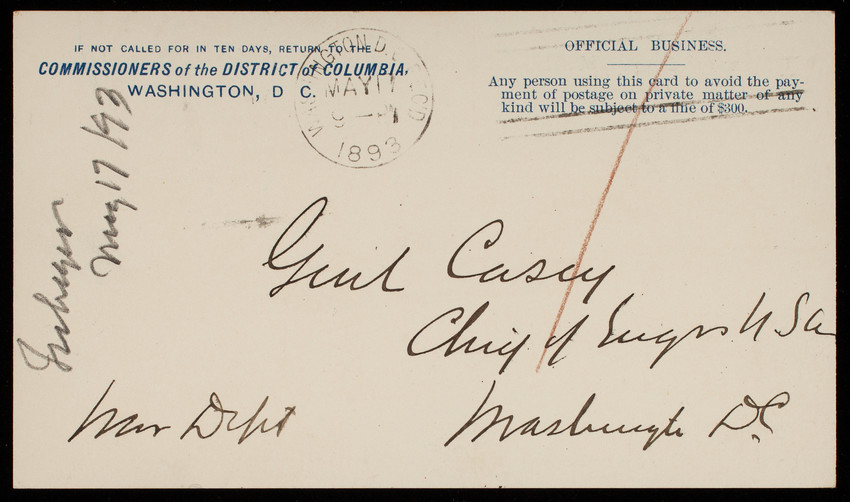 IF NOT CALLED FOR IN TEN DAYS, RETURN TO THE
COMMISSIONERS of the DISTRICT of COLUMBIA,
WASHINGTON, D C.
WASHINGTON, D.C.
MAY 17
1893
OFFICIAL BUSINESS.
Any person using this card to avoid the pay-
ment of postage on private matter of any
kind will be subject to a fine of $300.
May 17/93
Genl Casey
Chief of Engrs U S A
War Dept
Washingtn D.C.